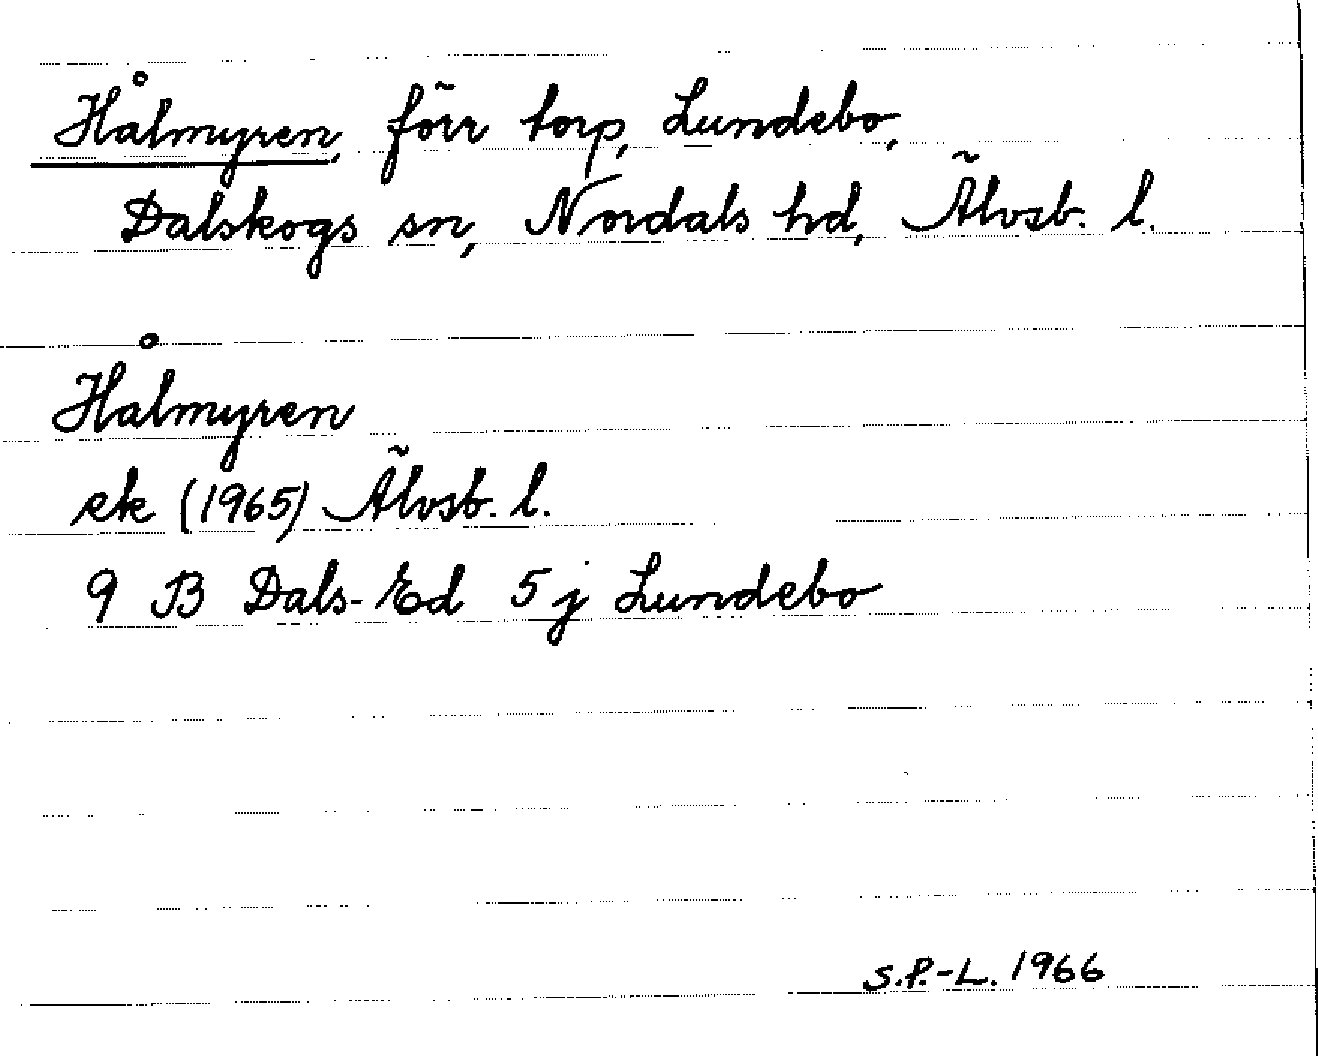 Hålmyren, förr torp, Lundebo,
Dalskogs sn, Nordals hd, Älvsb. l.
Hålmyren
ek (1965) Älvsb. l.
9 B Dals-Ed 5 j Lundebo
S.P.-L. 1966